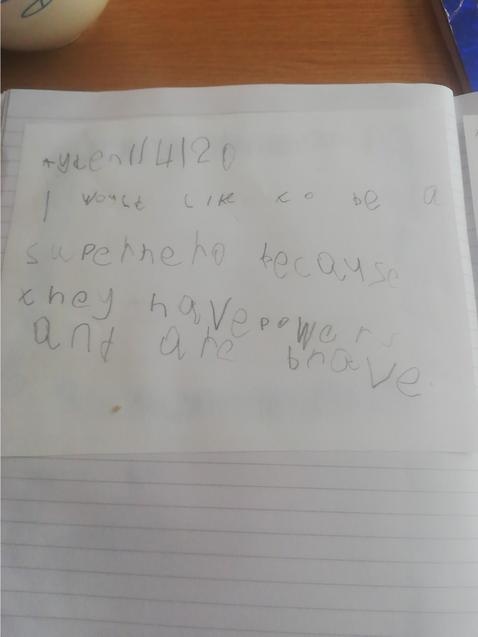 1/4/20
I would like to be a
superhero because
they have powers
and are brave.